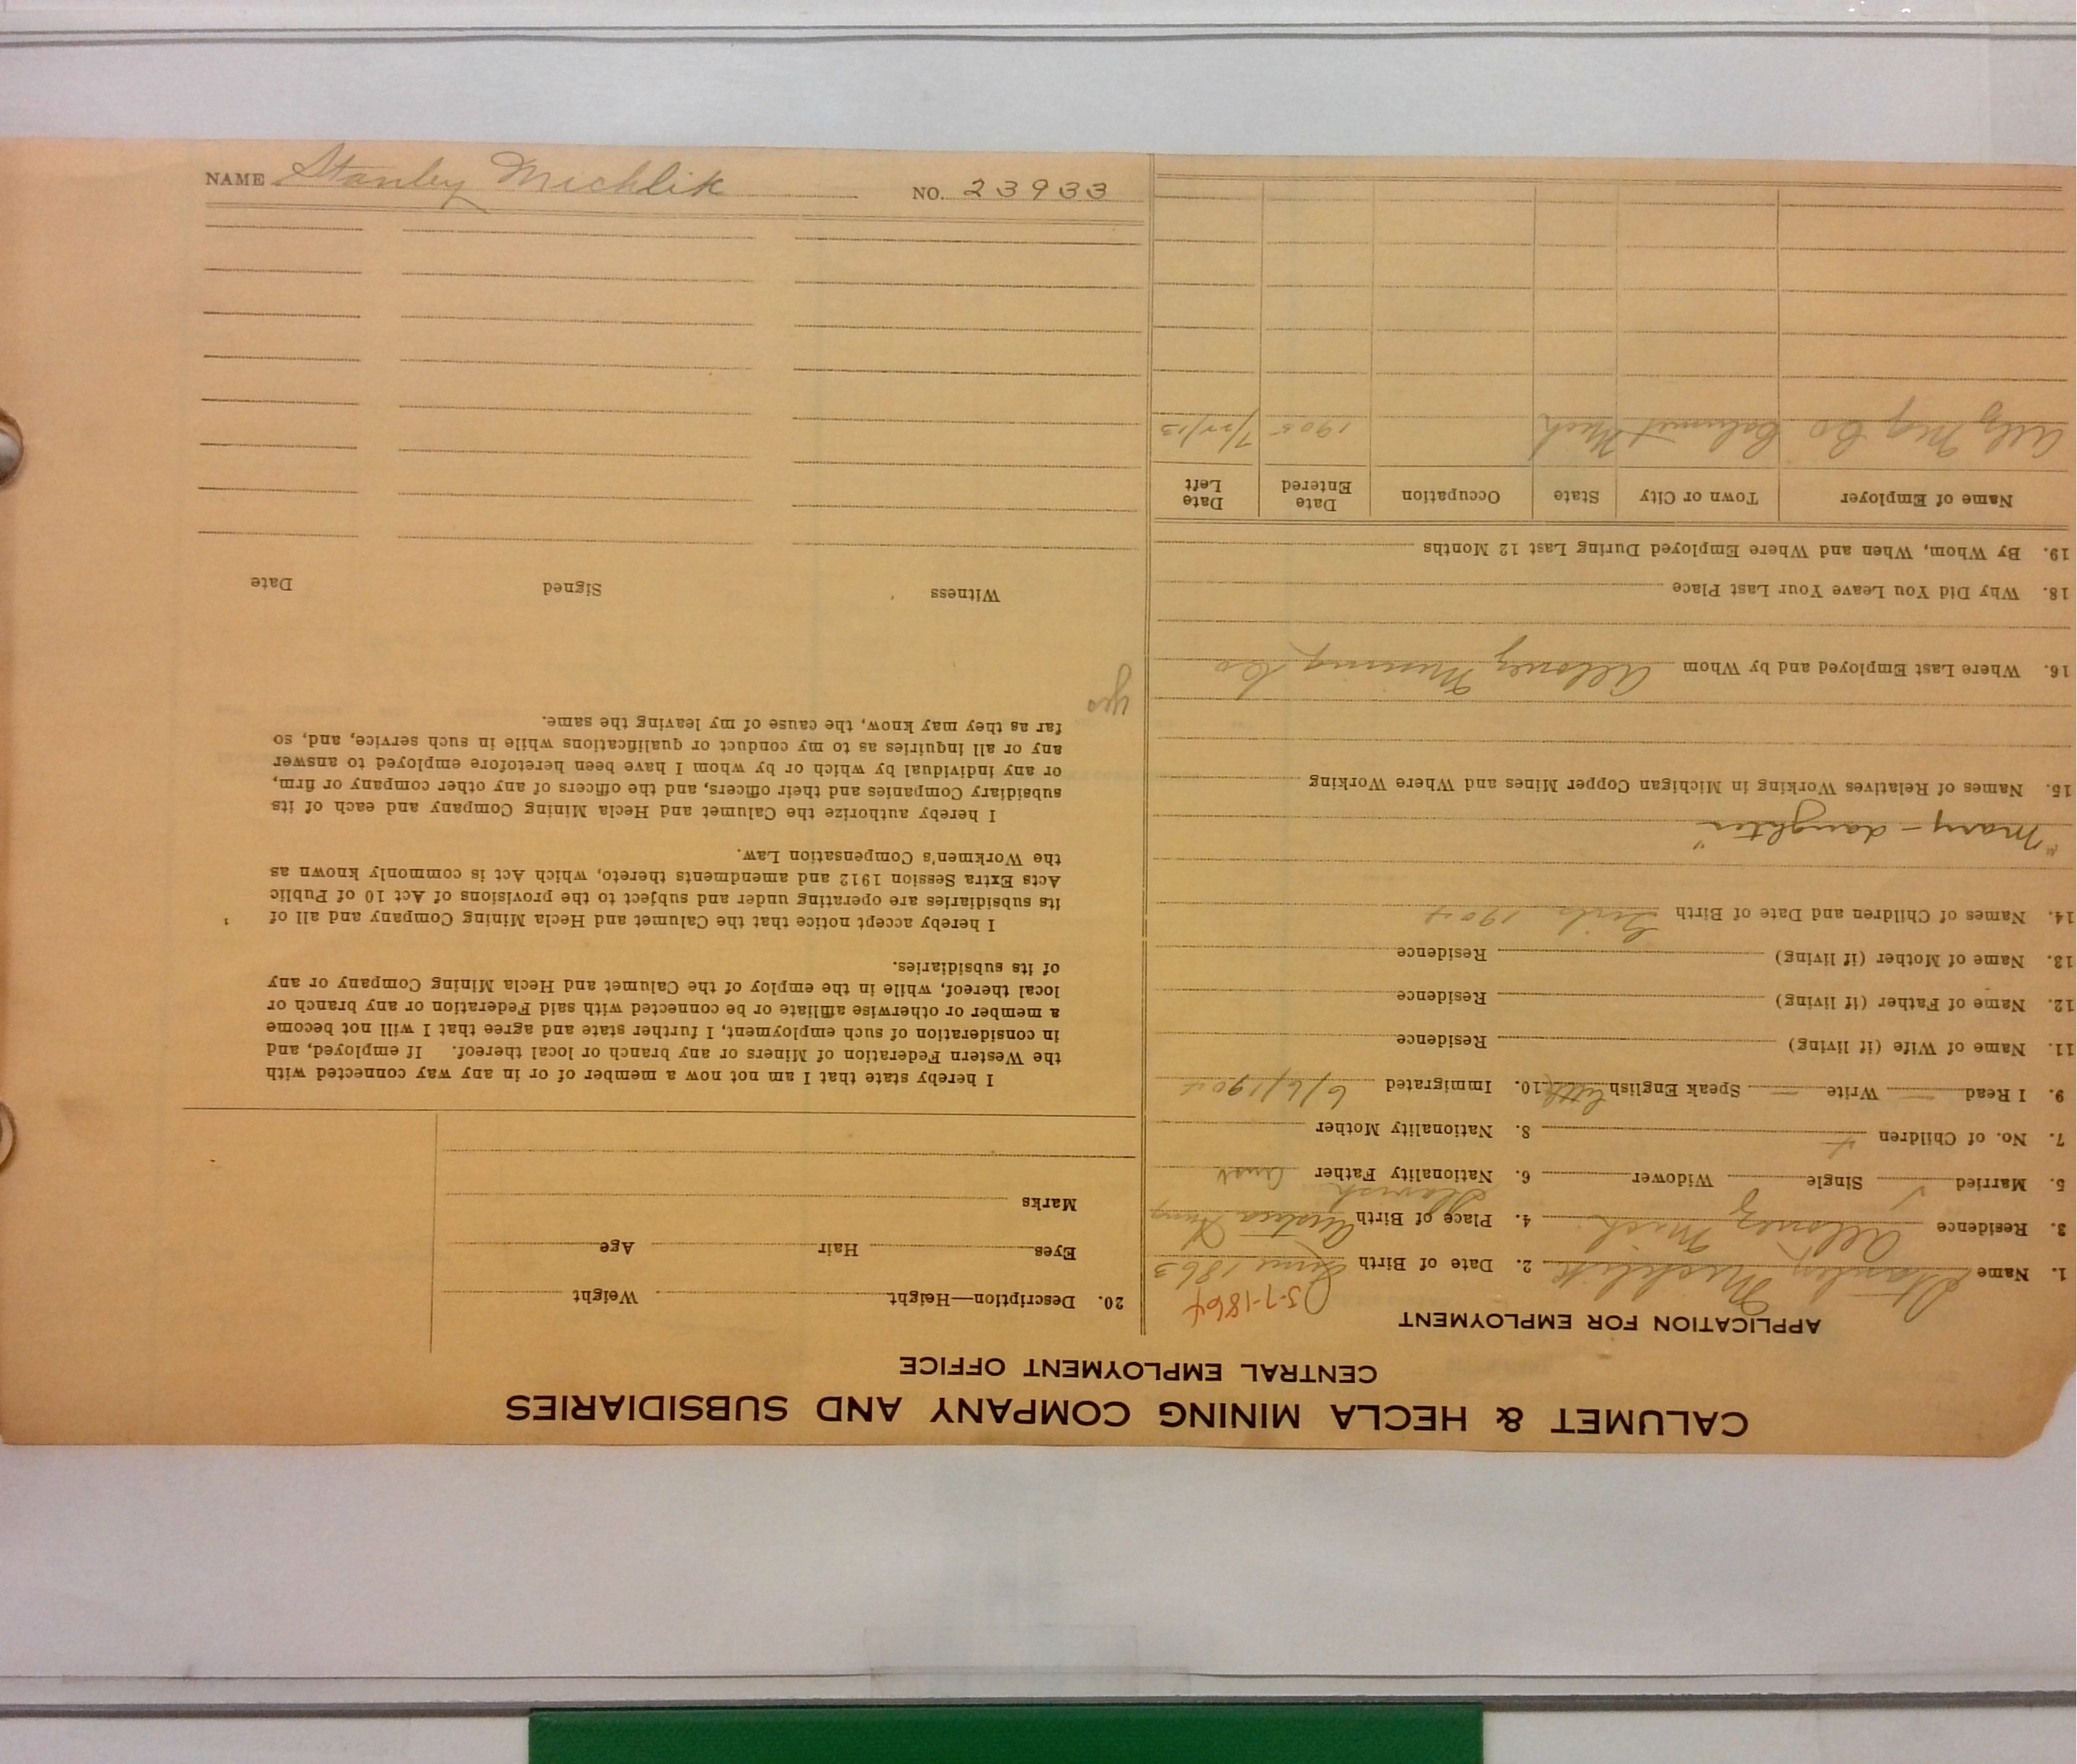 CALUMET & HECLA MINING COMPANY AND SUBSIDIARIES
CENTRAL EMPLOYMENT OFFICE
APPLICATION FOR EMPLOYMENT
5-7-1864
1. Name Stanley Michlik 2. Date of Birth June 1863
3. Residence Allouez Mich 4. Place of Birth Austria Hung
Slavish
5. Married ✓ Single Widower 6. Nationality Father Aust
7. No. of Children 4 8. Nationality Mother
9. I Read — Write — Speak English little 10. Immigrated 6/6/1904
11. Name of Wife (if living) Residence
12. Name of Father (if living) Residence
13. Name of Mother (if living) Residence
14. Names of Children and Date of Birth Girl 1904
"Mary - daughter"
15. Names of Relatives Working in Michigan Copper Mines and Where Working
16. Where Last Employed and by Whom Allouez Mining Co
18. Why Did You Leave Your Last Place
19. By Whom, When and Where Employed During Last 12 Months
Name of Employer Town or City State Occupation Date Entered Date Left
Allz Mg Co Calumet Mich 1905 7/22/13
20. Description—Height Weight
Eyes Hair Age
Marks
I hereby state that I am not now a member of or in any way connected with
the Western Federation of Miners or any branch or local thereof. If employed, and
in consideration of such employment, I further state and agree that I will not become
a member or otherwise affiliate or be connected with said Federation or any branch or
local thereof, while in the employ of the Calumet and Hecla Mining Company or any
of its subsidiaries.
I hereby accept notice that the Calumet and Hecla Mining Company and all of
its subsidiaries are operating under and subject to the provisions of Act 10 of Public
Acts Extra Session 1912 and amendments thereto, which Act is commonly known as
the Workmen's Compensation Law.
I hereby authorize the Calumet and Hecla Mining Company and each of its
subsidiary Companies and their officers, and the officers of any other company or firm,
or any individual by which or by whom I have been heretofore employed to answer
any or all inquiries as to my conduct or qualifications while in such service, and, so
far as they may know, the cause of my leaving the same.
yes
Witness Signed Date
NAME Stanley Michlik NO. 23933